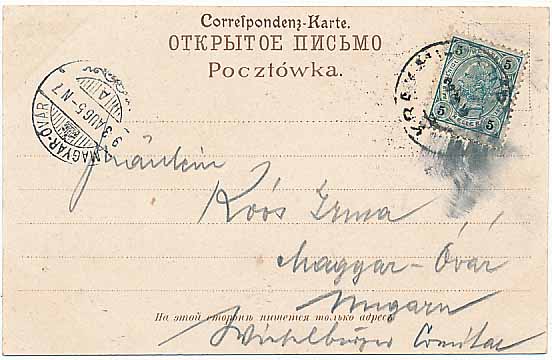 Correſpondenz-Karte.
ОТКРЫТОЕ ПИСЬМО
Pocztówka.
5 5
5 5
MAGYAR-ÓVÁR
Fräulein
Roós Irma
Magyar-Óvár
Ungarn
На этой сторонѣ пишется только адресъ
Comitat